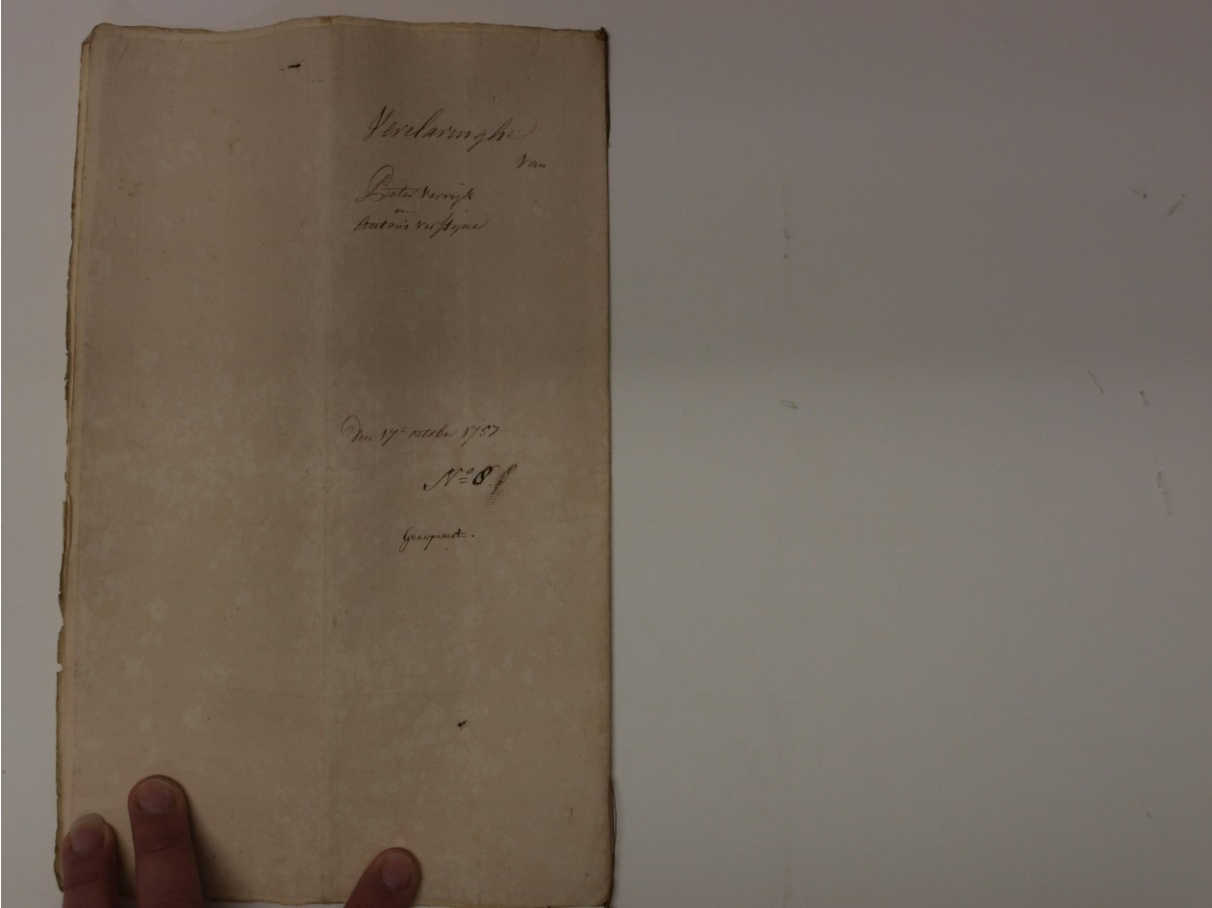 Verclaringhe
van
Peeter Verrijk
en
Antoni Verstijne
Den 17e october 1757
No 8.
Gecopieert.